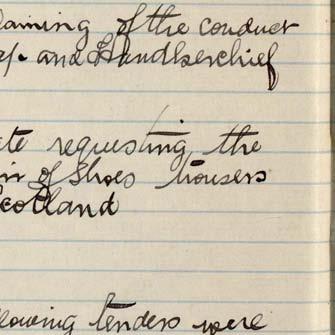 laining of the conduct
and Handkerchief
requesting the
of Shoes trousers
Scotland
lowing tenders were